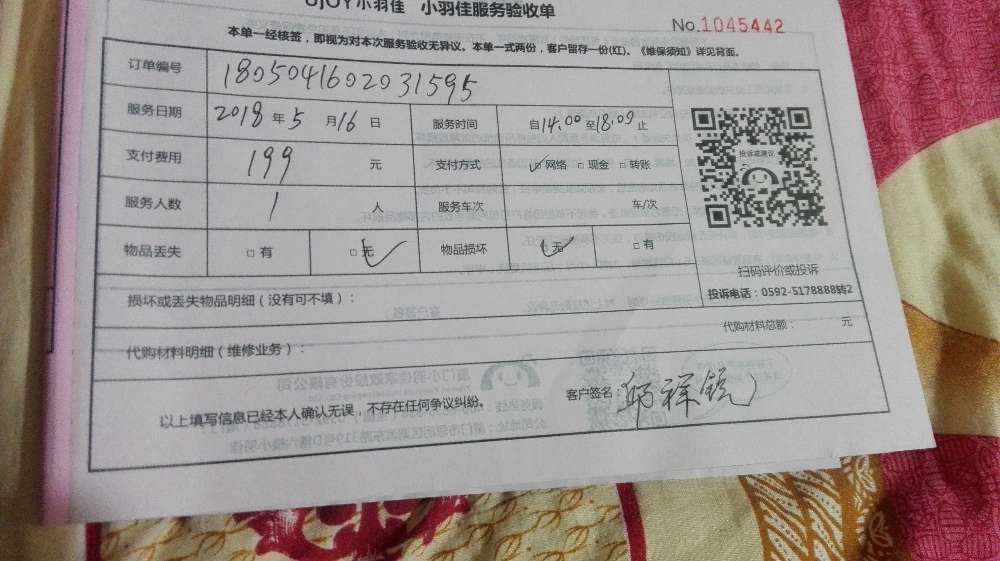 UJOY小羽佳 小羽佳服务验收单
No.1045442
本单一经核签，即视为对本次服务验收无异议。本单一式两份，客户留存一份(红)。《维保须知》详见背面。
订单编号 180504160203​1595
服务日期 2018年5月16日 服务时间 自14.00至18.09止
支付费用 199 元 支付方式 ☑网络 □现金 □转账
服务人数 1 人 服务车次 车/次
物品丢失 □有 □无 ✓ 物品损坏 □无 ✓ □有
投诉或建议
扫码评价或投诉
投诉电话：0592-5178888转2
损坏或丢失物品明细（没有可不填）：
代购材料明细（维修业务）： 代购材料总额： 元
以上填写信息已经本人确认无误，不存在任何争议纠纷。 客户签名：